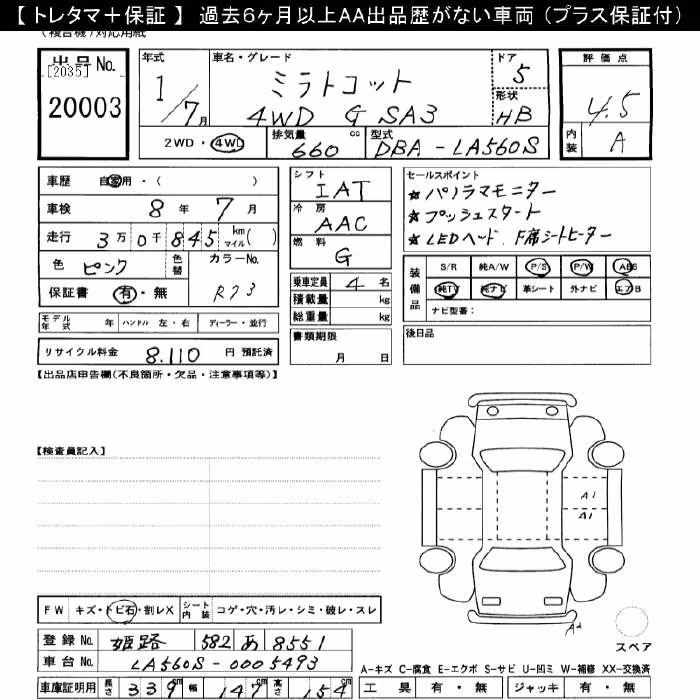 【 トレタマ＋保証 】 過去6ヶ月以上AA出品歴がない車両 (プラス保証付)
(複合機)対応用紙
出品No. [2035] 20003
年式 1/7月
車名・グレード ミラトコット 4WD G SA3
ドア 5
形状 HB
評価点 4.5
内装 A
2WD・4WD
排気量 660 cc
型式 DBA-LA560S
車歴 自家用・( )
車検 8年 7月
走行 3万0千845 km マイル( )
色 ピンク
色替
カラーNo. R73
保証書 有・無
モデル年式 年 ハンドル 左・右 ディーラー・並行
リサイクル料金 8.110 円 預託済
シフト IAT
冷房 AAC
燃料 G
乗車定員 4 名
積載量 kg
総重量 kg
書類期限 月 日
セールスポイント
★パノラマモニター
★プッシュスタート
★LEDヘッド、F席シートヒーター
装備品 S/R 純A/W P/S P/W ABS
純TV 純ナビ 革シート 外ナビ エアB
ナビ型番：
後日品
【出品店申告欄(不良箇所・欠品・注意事項等)】
【検査員記入】
A1
A1
A2
スペア
FW キズ・トビ石・割レX シート内装 コゲ・穴・汚レ・シミ・破レ・スレ
登録No. 姫路 582 あ 8551
車台No. LA560S-0005493
車庫証明用 長さ 339cm 幅 147cm 高さ 154cm
A-キズ C-腐食 E-エクボ S-サビ U-凹ミ W-補修 XX-交換済
工具 有・無 ジャッキ 有・無